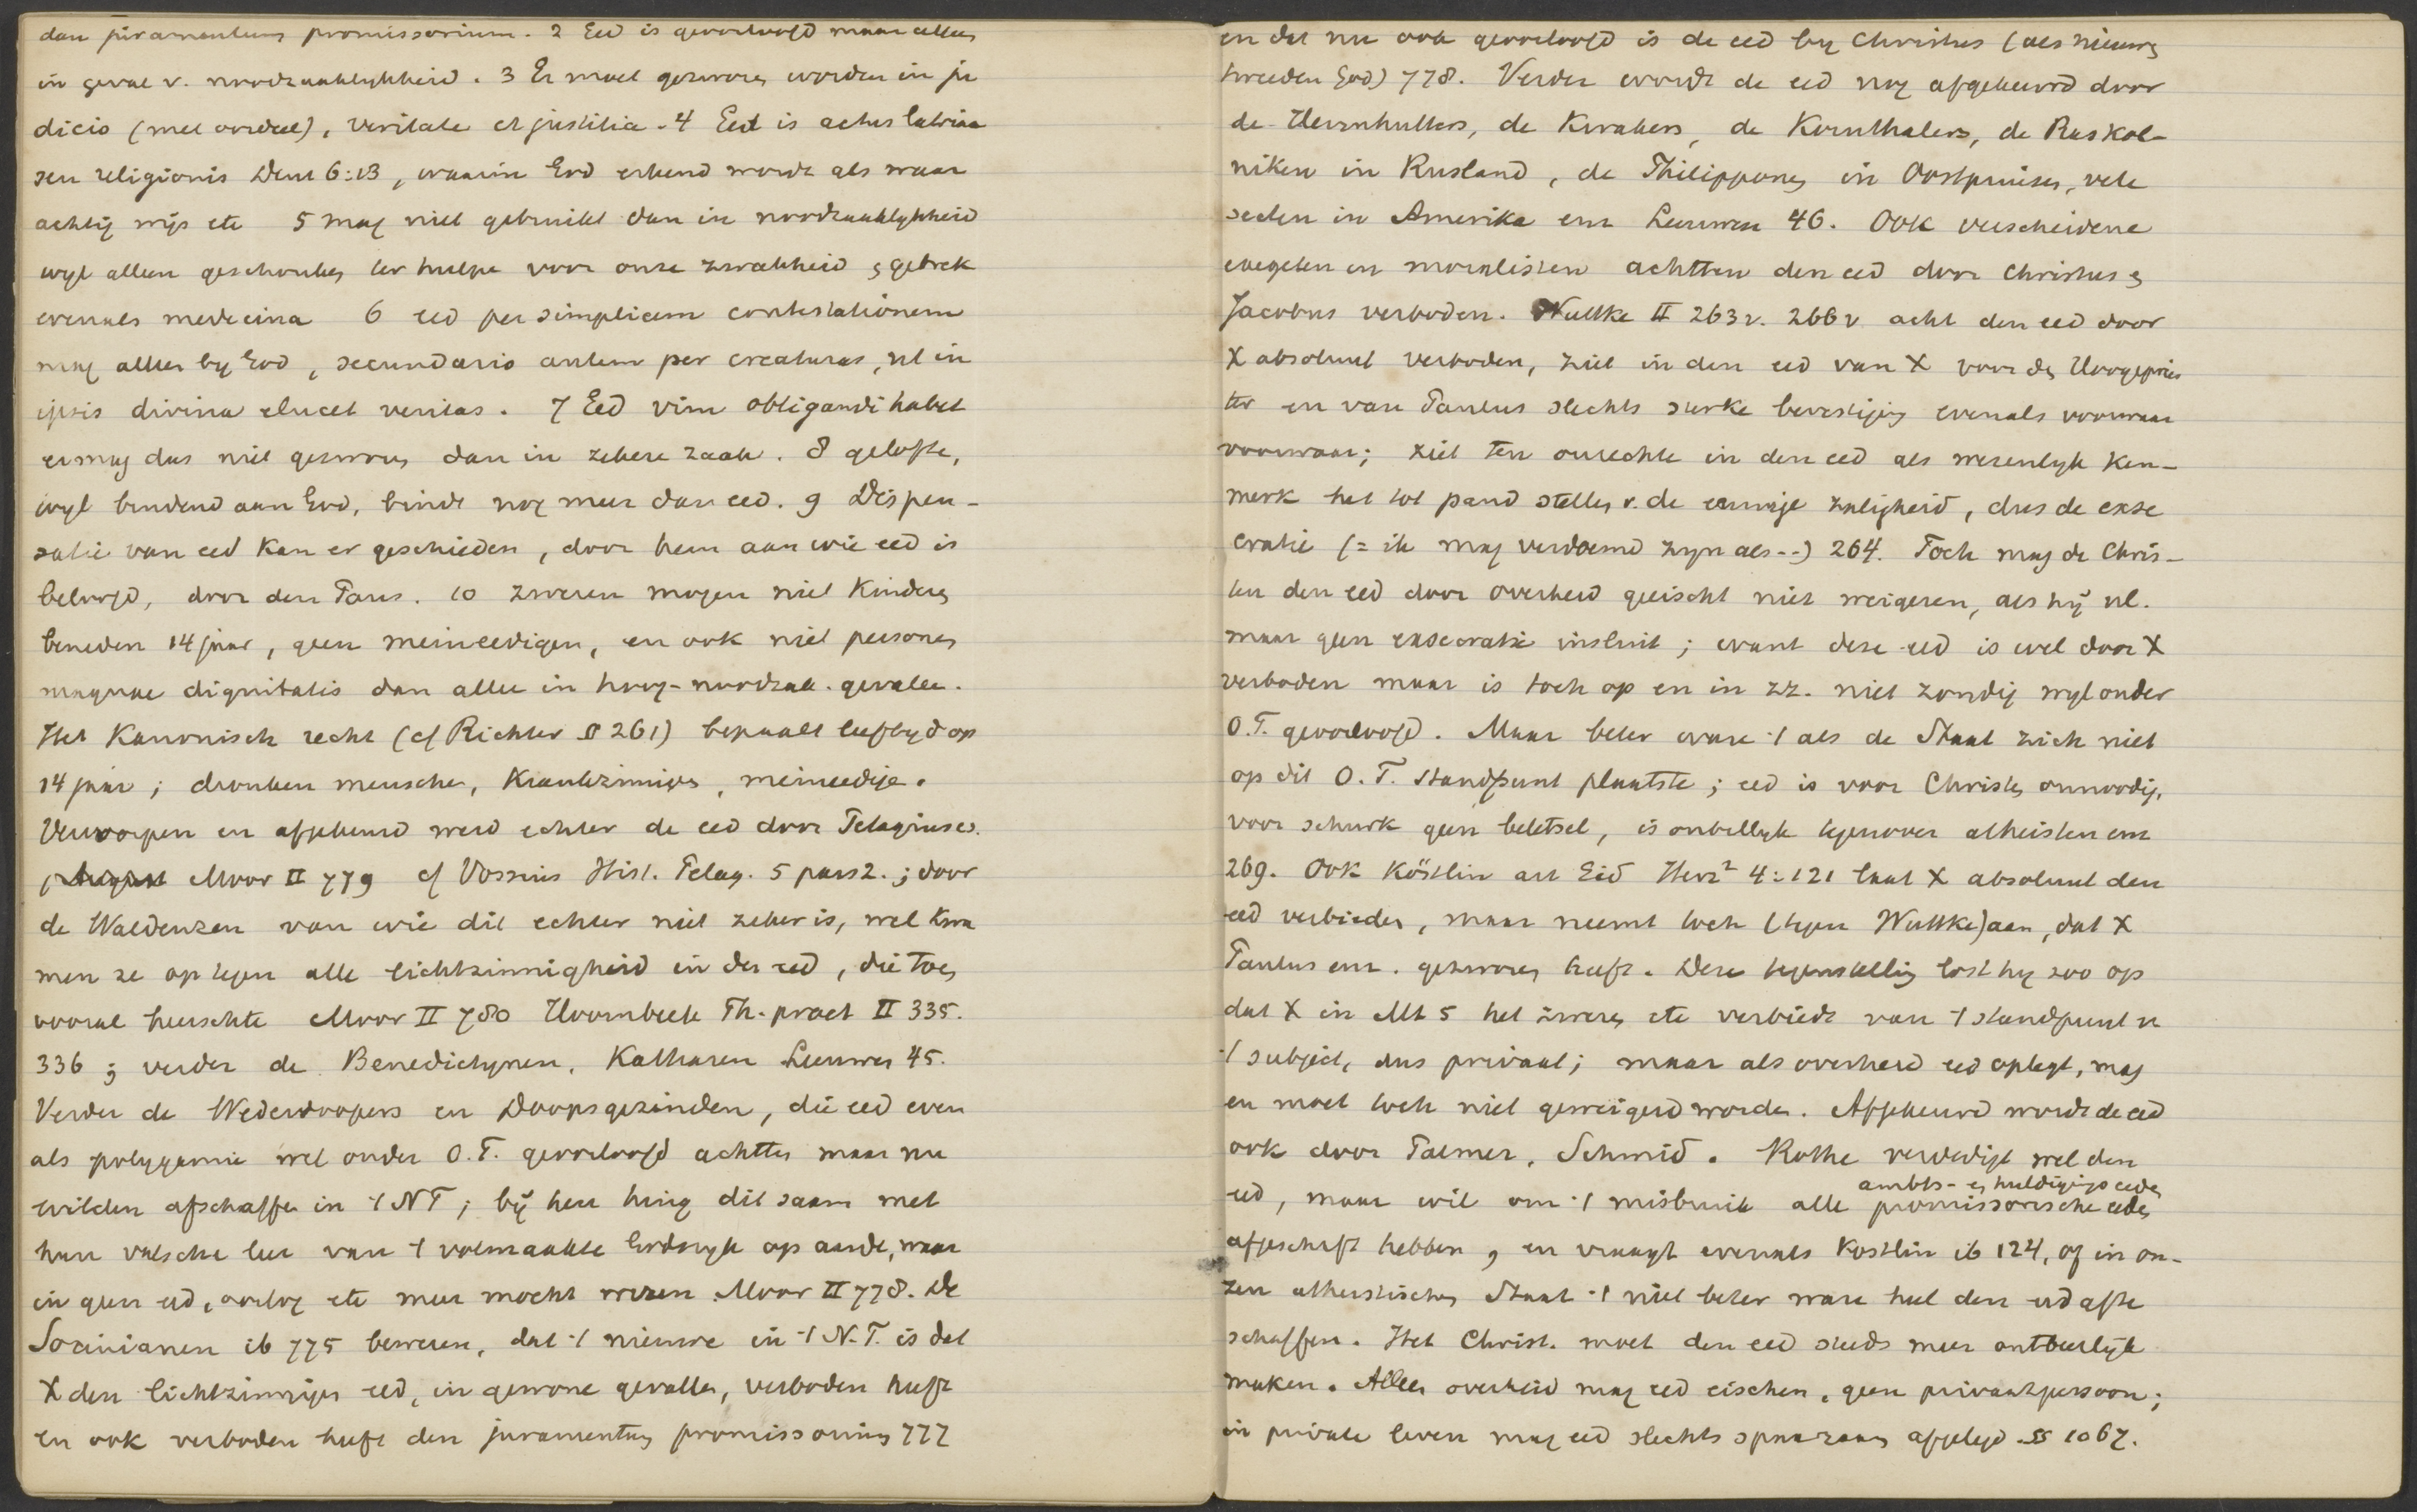 dan juramentum promissorium. 2 Eed is geoorloofd maar alleen
in geval v. noodzaaklykheid. 3 Er moet gezworen worden in ju
dicio (met oordeel), veritate et justitia. 4 Eed is actus latriae
seu religionis Deut 6:13, waarin God erkend wordt als waar
achtig wijs etc 5 mag niet gebruikt dan in noodzaaklykheid
wyl alleen geschonken ter hulpe voor onze zwakheid en gebrek
evenals medecina 6 eed per simplicem contestationem
mag alleen by God, secundario autem per creaturas, ut in
ipsis divina elucet veritas. 7 Eed vim obligandi habet
er mag dus niet gezworen dan in zekere zaak. 8 gelofte,
wyl bindend aan God, bindt nog meer dan eed. 9 Dispen-
satie van eed kan er geschieden, door hem aan wie eed is
beloofd, door den Paus. 10 zweren mogen niet kinderen
beneden 14 jaar, geen meineedigen, en ook niet personen
magnae dignitatis dan alleen in hoog-noodzak. gevallen.
Het Kanonisch recht (cf Richter § 261) bepaalt leeftyd op
14 jaar; dronken menschen, krankzinnigen, meineedige.
Verworpen en afgekeurd werd echter de eed door Pelagius cs.
Moor II 779 cf Vossius Hist. Pelag. 5 pars 2.; door
de Waldenzen van wie dit echter niet zeker is, wel kwa
men ze op tegen alle lichtzinnigheid in den eed, die toen
vooral heerschte Moor II 780 Hoornbeek Th. pract II 335.
336; verder de Benedictynen, Katharen Leeuwen 45.
Verder de Wederdoopers en Doopsgezinden, die eed even
als polygamie wel onder O.T. geoorloofd achtten maar nu
wilden afschaffen in 't NT; bij hen hing dit saam met
hun valsche leer van 't volmaakte Godsryk op aarde, waar
in geen eed, oorlog etc meer mocht wezen Moor II 778. De
Socinianen ib 775 beweren, dat 't nieuwe in 't N.T. is dat
X den lichtzinnigen eed, in gewone gevallen, verboden heeft
en ook verboden heeft den juramentum promissorium 777
en dat nu ook geoorloofd is de eed by Christus (als nieuwen
tweeden God) 778. Verder wordt de eed nog afgekeurd door
de Hernhutters, de Kwakers, de Kornthalers, de Raskol-
niken in Rusland, de Philipponen in Oostpruisen, vele
secten in Amerika enz Leeuwen 46. Ook verscheidene
exegeten en moralisten achtten den eed door Christus en
Jacobus verboden. Wuttke II 263v. 266v acht den eed door
X absoluut verboden, ziet in den eed van X voor den Hoogepries
ter en van Paulus slechts sterke bevestiging evenals voorwaar
voorwaar; ziet ten onrechte in den eed als wezenlyk ken-
merk het tot pand stellen v. de eeuwige zaligheid, dus de exse
cratie (= ik mag verdoemd zyn als --) 264. Toch mag de Chris-
ten den eed door overheid geëischt niet weigeren, als hij nl.
maar geen exsecratie insluit; want deze eed is wel door X
verboden maar is toch op en in zz. niet zondig wyl onder
O.T. geoorloofd. Maar beter ware 't als de Staat zich niet
op dit O.T. standpunt plaatste; eed is voor Christen onnoodig,
voor schurk geen beletsel, is onbillyk tegenover atheisten enz
269. Ook Köstlin art Eid Herz² 4:121 laat X absoluut den
eed verbieden, maar neemt toch (tegen Wuttke) aan, dat X
Paulus enz. gezworen heeft. Deze tegenstelling lost hy zoo op
dat X in Mt 5 het zweren etc verbiedt van 't standpunt v
't subject, dus privaat; maar als overheid eed oplegt, mag
en moet toch niet geweigerd worden. Afgekeurd wordt de eed
ook door Palmer, Schmid. Rothe verdedigt wel den
ambts- en huldigings eeden
eed, maar wil om 't misbruik alle promissorische eeden
afgeschaft hebben, en vraagt evenals Köstlin ib 124, of in on-
zen atheistischen Staat 't niet beter ware heel den eed af te
schaffen. Het Christ. moet den eed steeds meer ontbeerlyk
maken. Alleen overheid mag eed eischen, geen privaatpersoon;
in private leven mag eed slechts spaarzaam afgelegd §§ 1067.